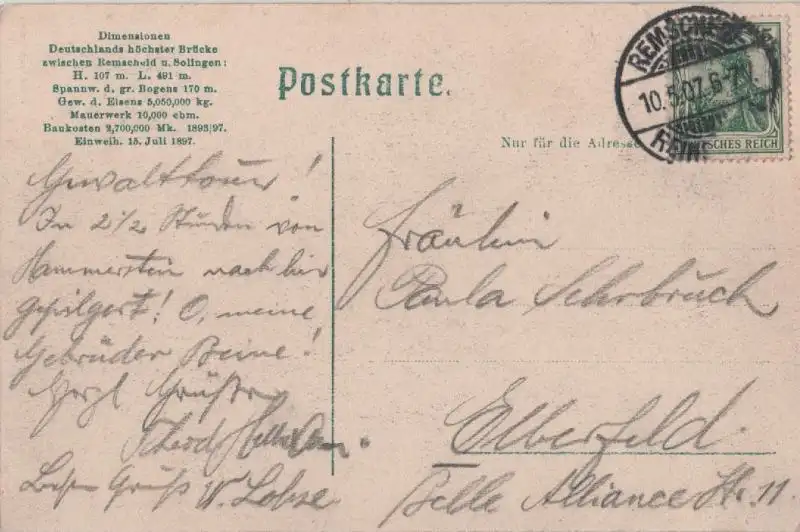 Dimensionen
Deutschlands höchster Brücke
zwischen Remscheid u. Solingen:
H. 107 m. L. 491 m.
Spannw. d. gr. Bogens 170 m.
Gew. d. Eisens 5,050,000 kg.
Mauerwerk 10,000 cbm.
Baukosten 2,700,000 Mk. 1893/97.
Einweih. 15. Juli 1897.
Postkarte.
REMSCHEID
10.5.07. 6-7
Nur für die Adresse
DEUTSCHES REICH
Gewalttour!
In 2 1/2 Stunden von
Hammerstein nach hier
gepilgert! O, meine
Gebrüder Beine!
Herzl Grüße
Besten Gruß W. Lohse
Fräulein
Paula Sehrbruch
Elberfeld.
Belle Alliance Str. 11